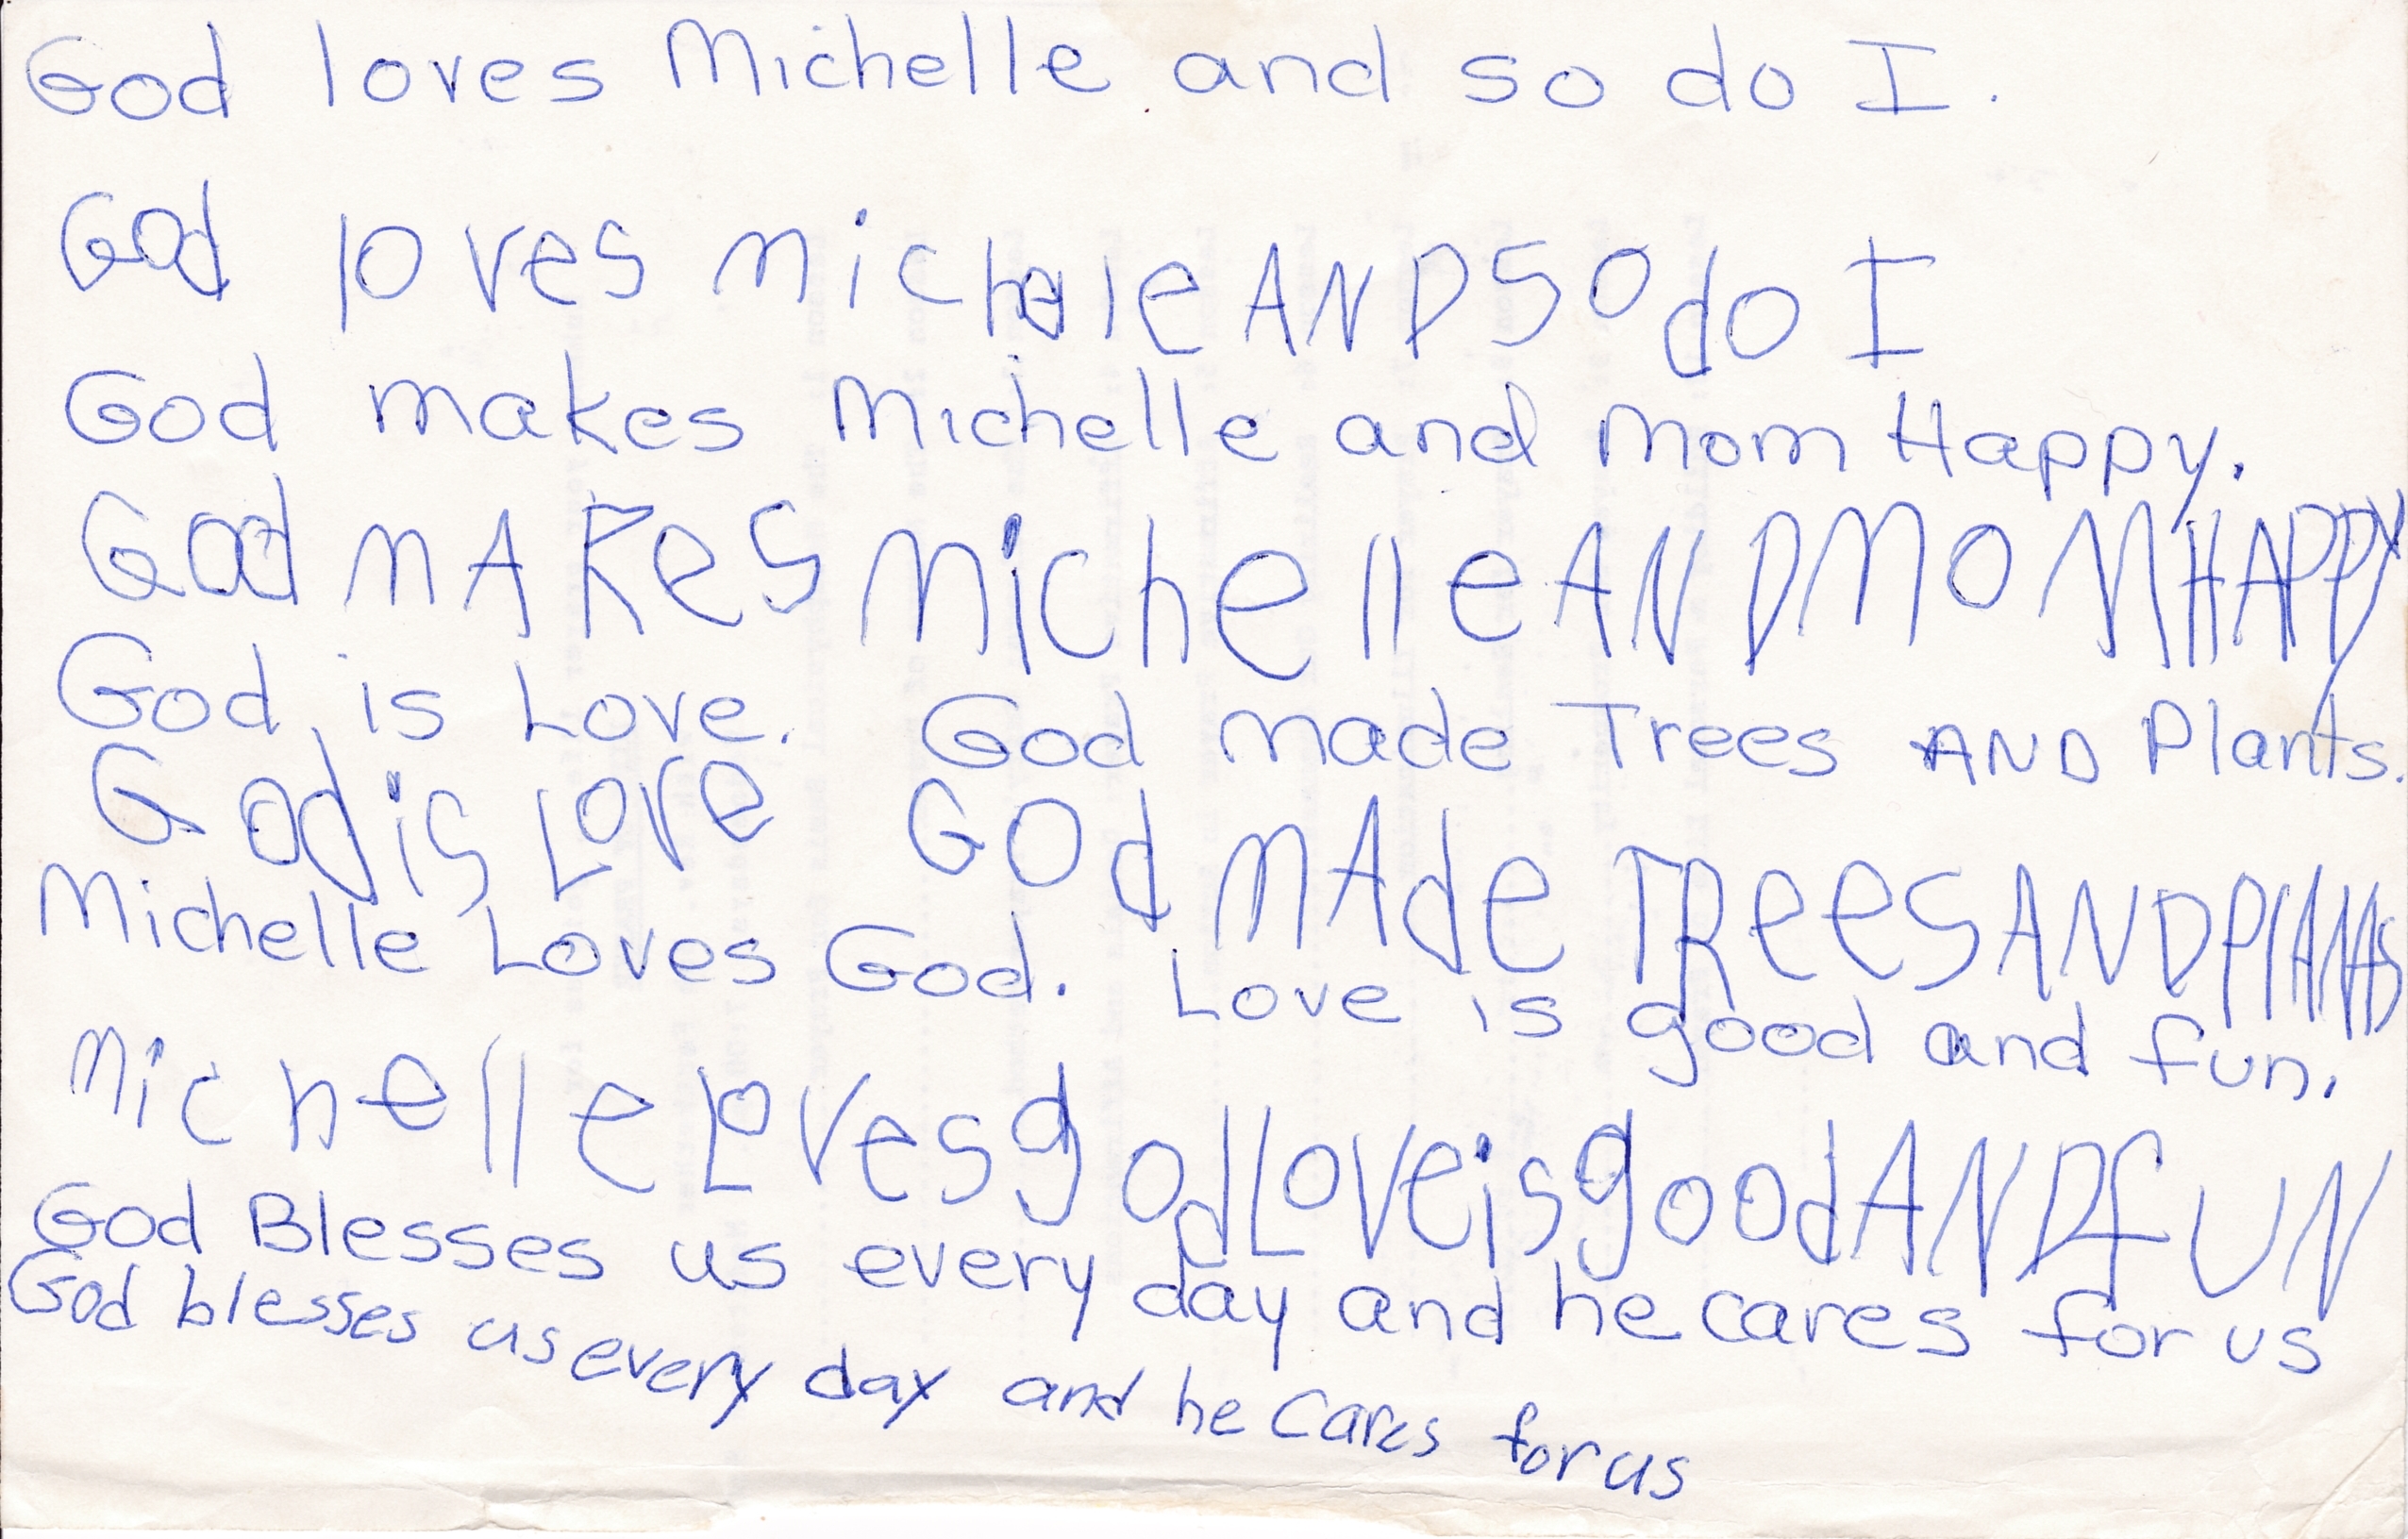 God loves Michelle and so do I.
God loves michale AND so do I
God makes Michelle and Mom Happy.
God mAKes michelle AND MOM HAPPY
God is Love. God made Trees AND Plants.
God is Love GOd MAde TReeS AND PlANts
Michelle Loves God. Love is good and fun.
michelle Loves god Love is good AND fUN
God Blesses us every day and he cares for us
God blesses us every day and he cares for us